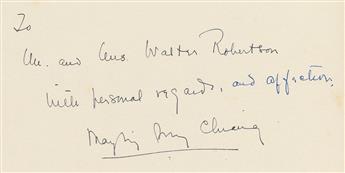 To
Mr. and Mrs. Walter Robertson
with personal regards, and affection,
Mayling Soong Chiang